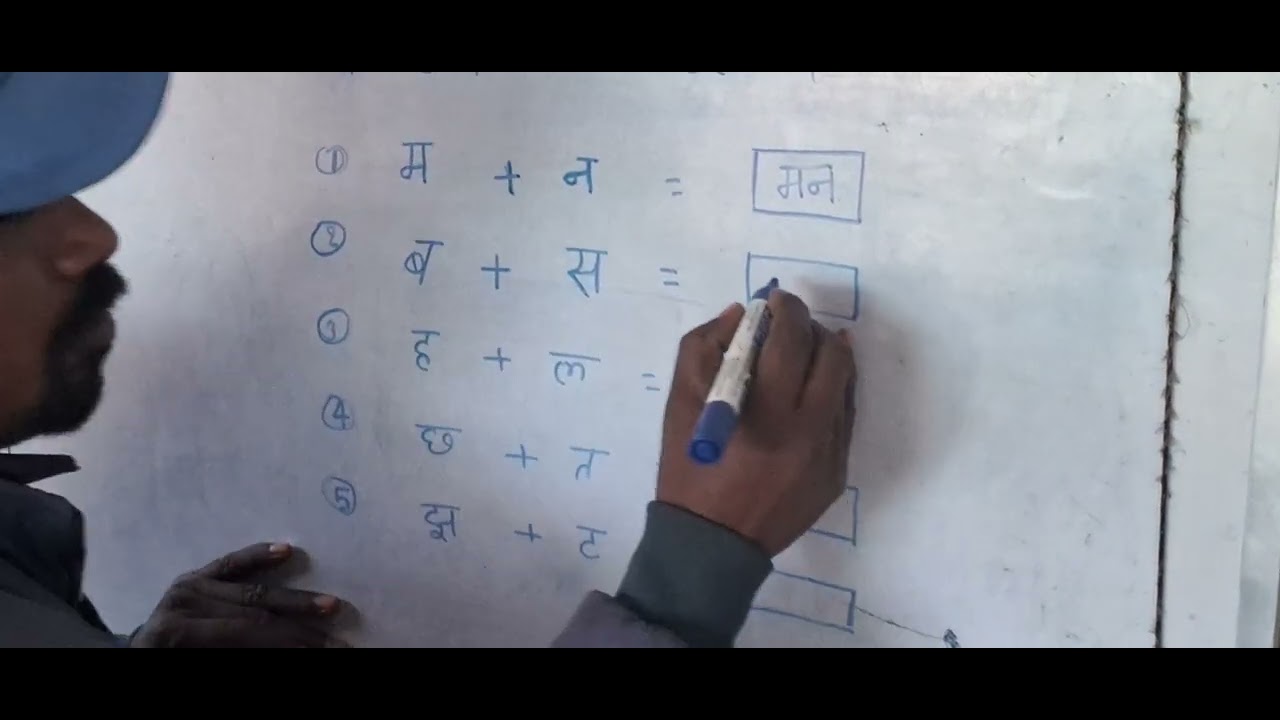 ① म + न = मन
② ब + स =
③ ह + ल =
④ छ + त
⑤ झ + ट